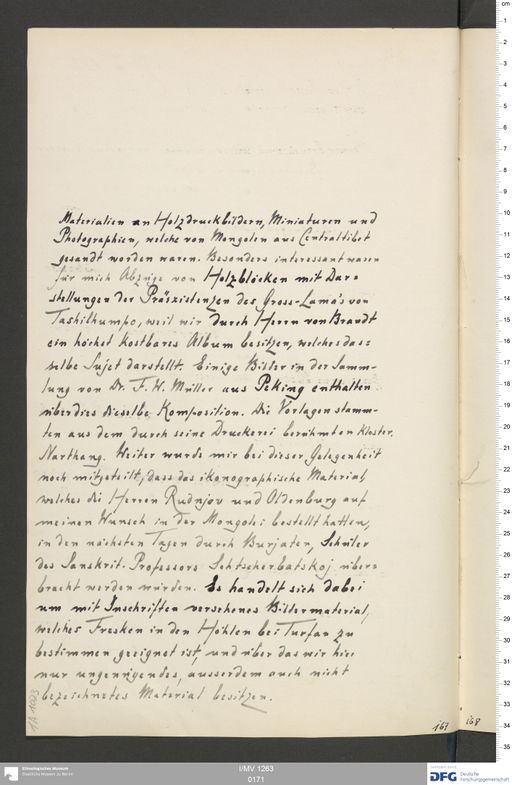 Materialien an Holzdruckbildern, Miniaturen und
Photographien, welche von Mongolen aus Centraltibet
gesandt worden waren. Besonders interessant waren
für mich Abzüge von Holzblöcken mit Dar=
stellungen der Präexistenzen des Gross-Lama's von
Tashilhumpo, weil wir durch Herrn von Brandt
ein höchst kostbares Album besitzen, welches das=
selbe Sujet darstellt. Einige Bilder in der Samm-
lung von Dr. F. W. Müller aus Peking enthalten
überdies dieselbe Komposition. Die Vorlagen stamm-
ten aus dem durch seine Druckerei berühmten Kloster,
Narthang. Weiter wurde mir bei dieser Gelegenheit
noch mitgeteilt, dass das ikonographische Material,
welches die Herren Rudnjov und Oldenburg auf
meinen Wunsch in der Mongolei bestellt hatten,
in den nächsten Tagen durch Burjaten, Schüler
des Sanskrit-Professors Schtscherbatskoj über=
bracht werden würden. Es handelt sich dabei
um mit Inschriften versehenes Bildermaterial,
welches Fresken in den Höhlen bei Turfan zu
bestimmen geeignet ist, und über das wir hier
nur ungenügendes, ausserdem auch nicht
bezeichnetes Material besitzen.
1A 1003
167
168
Ethnologisches Museum
Staatliche Museen zu Berlin
I/MV 1263
0171
DFG Deutsche
Forschungsgemeinschaft
cm
1
2
3
4
5
6
7
8
9
10
11
12
13
14
15
16
17
18
19
20
21
22
23
24
25
26
27
28
29
30
31
32
33
34
35